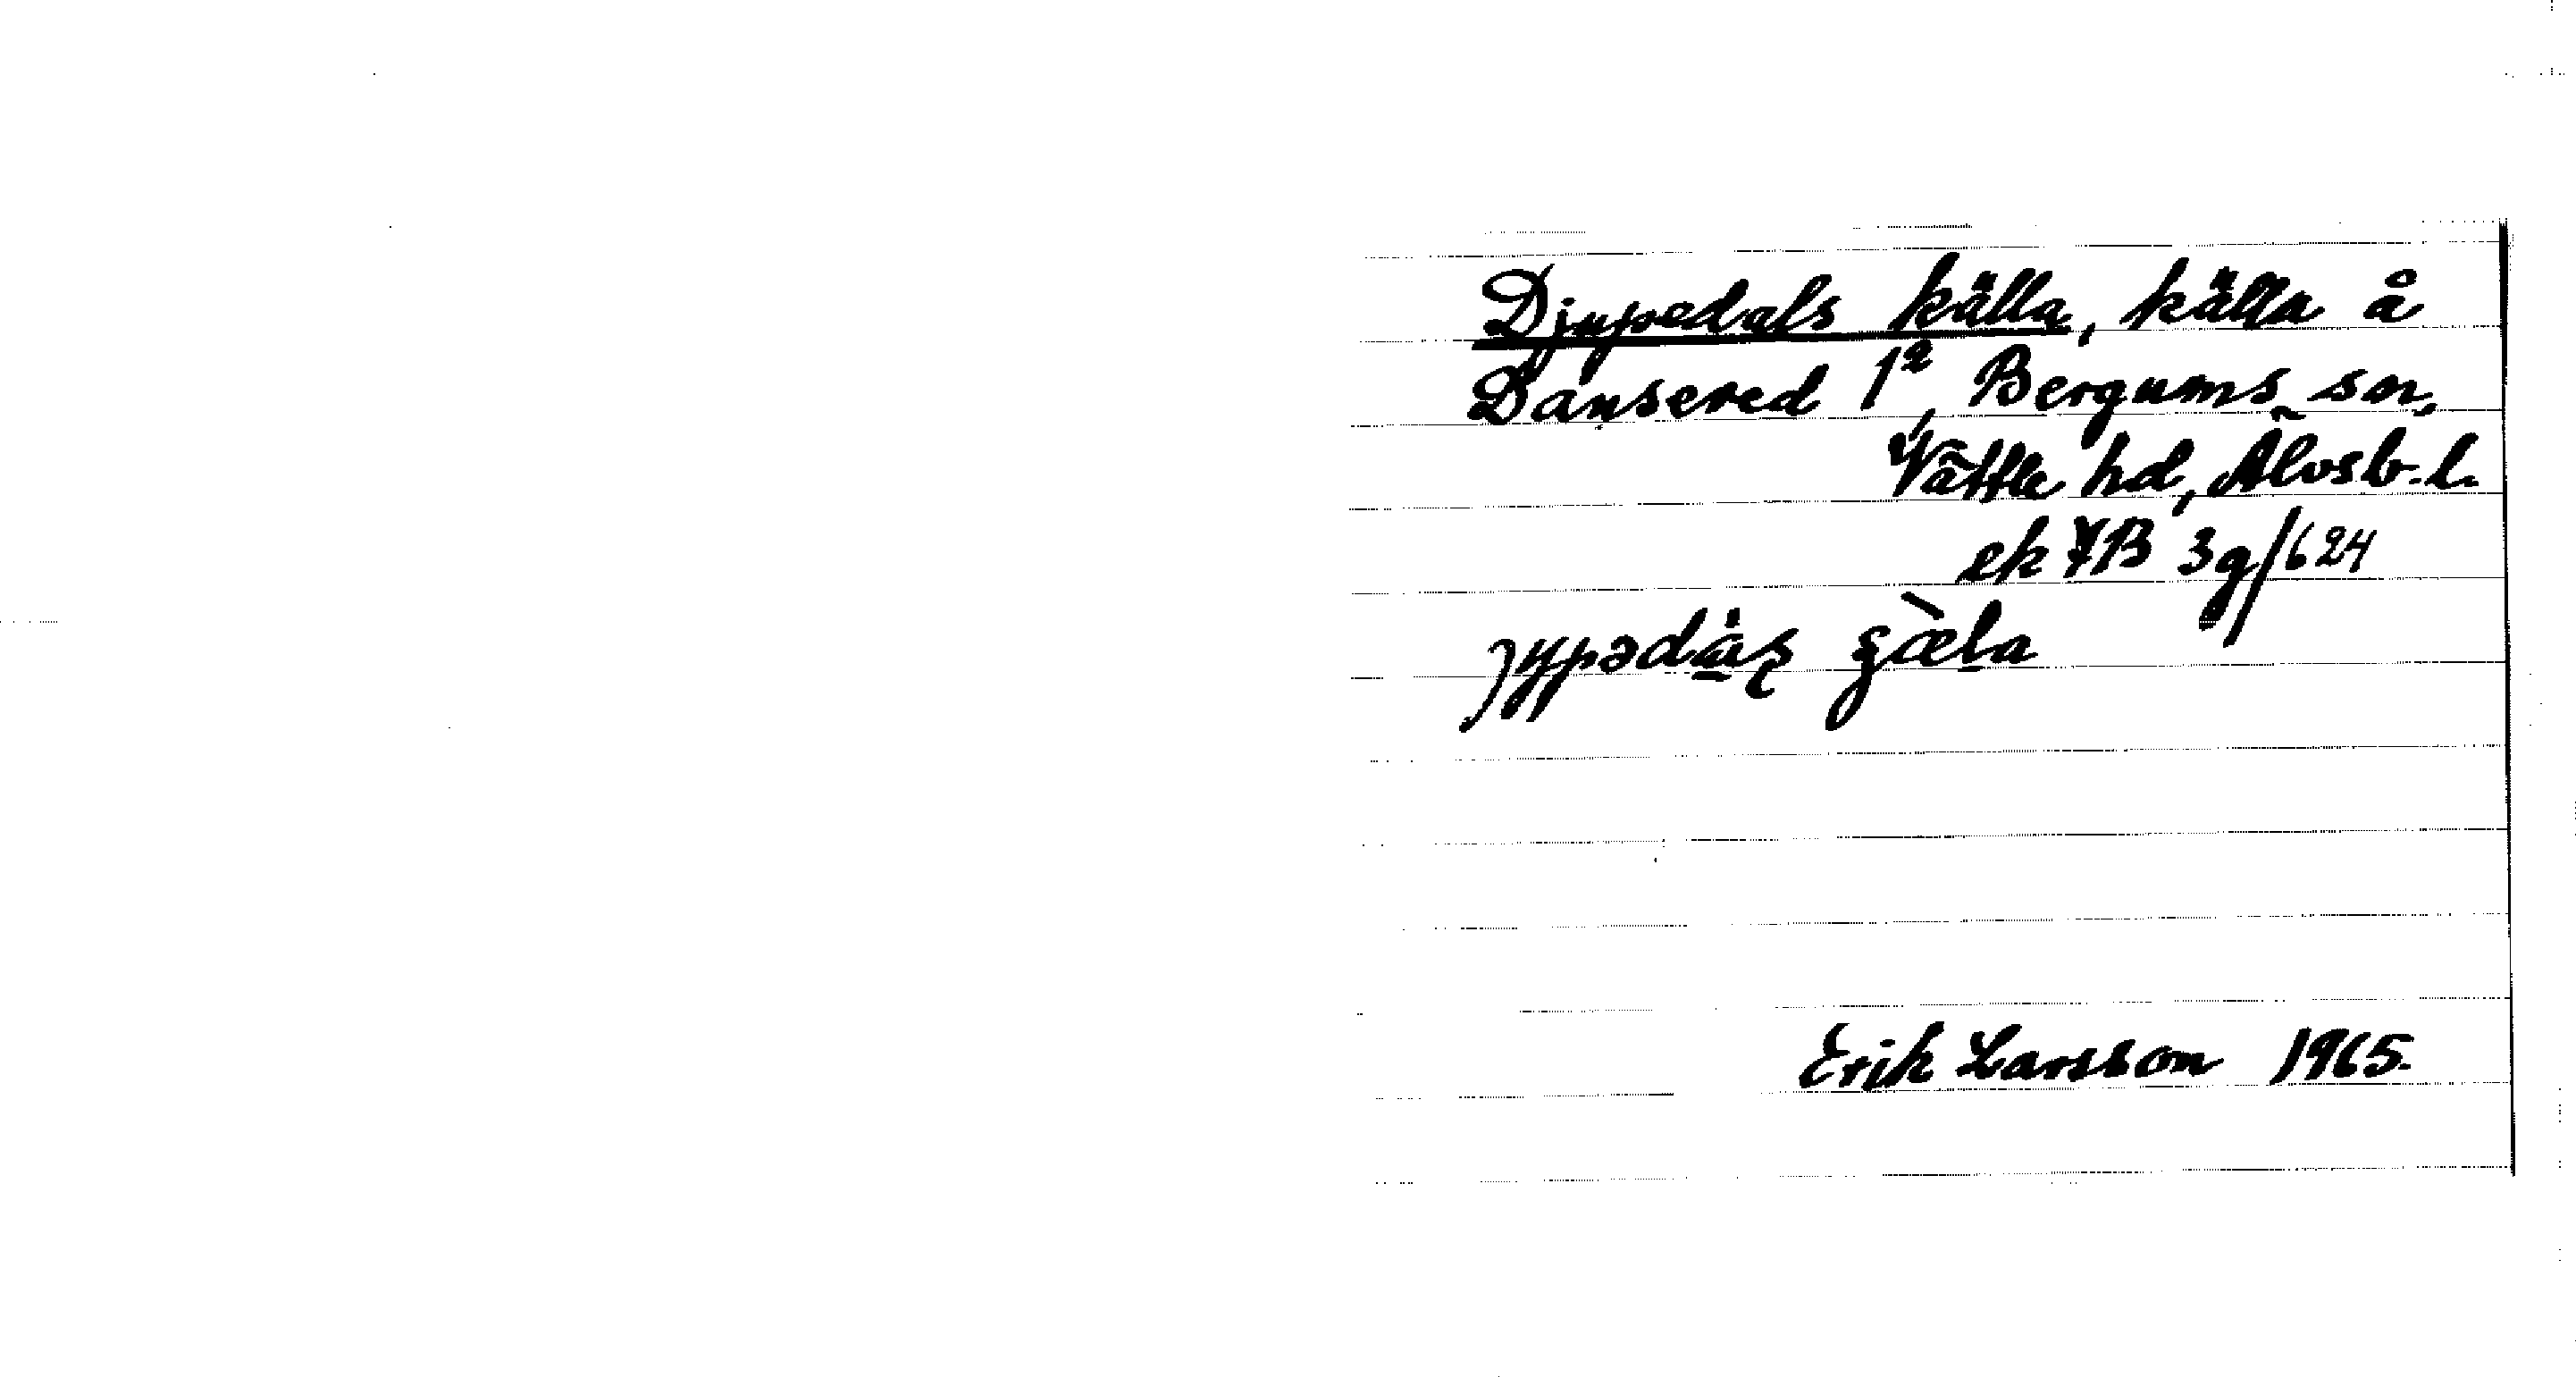 Djupedals källa, källa å
Dansered 1², Bergums sn,
Vättle hd, Älvsb. l.
ek 7B 3g/624
ȷypədàʂ ʂæ̀la
Erik Larsson 1965.